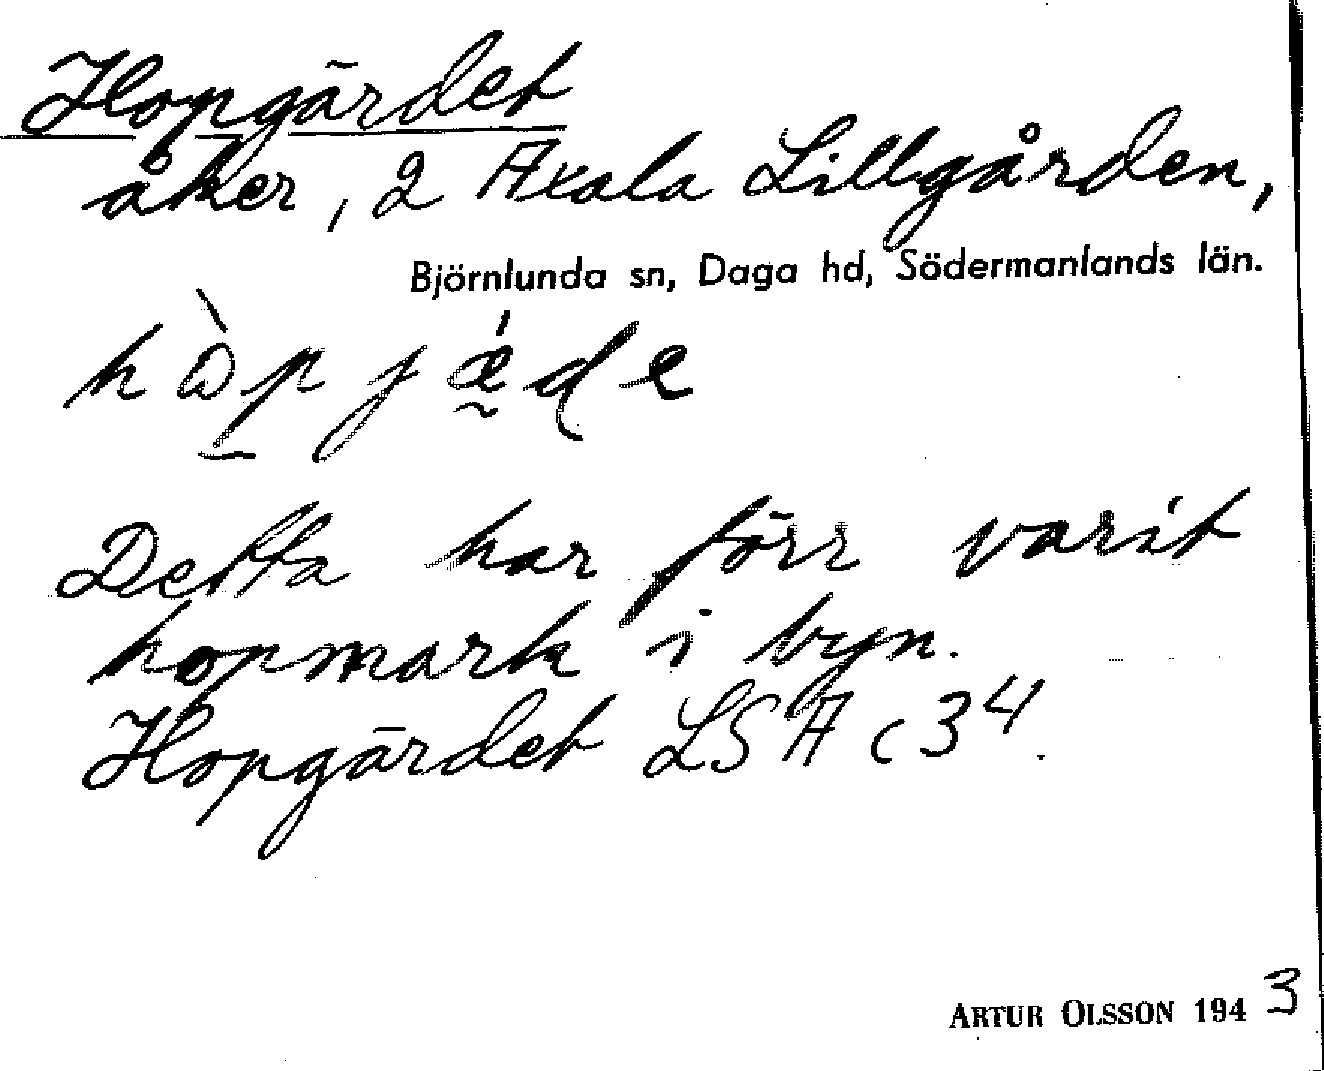 Hopgärdet
åker, 2 Axala Lillgården,
Björnlunda sn, Daga hd, Södermanlands län.
Detta har förr varit
hopmark i byn.
Hopgärdet LSA C34.
ARTUR OLSSON 1943